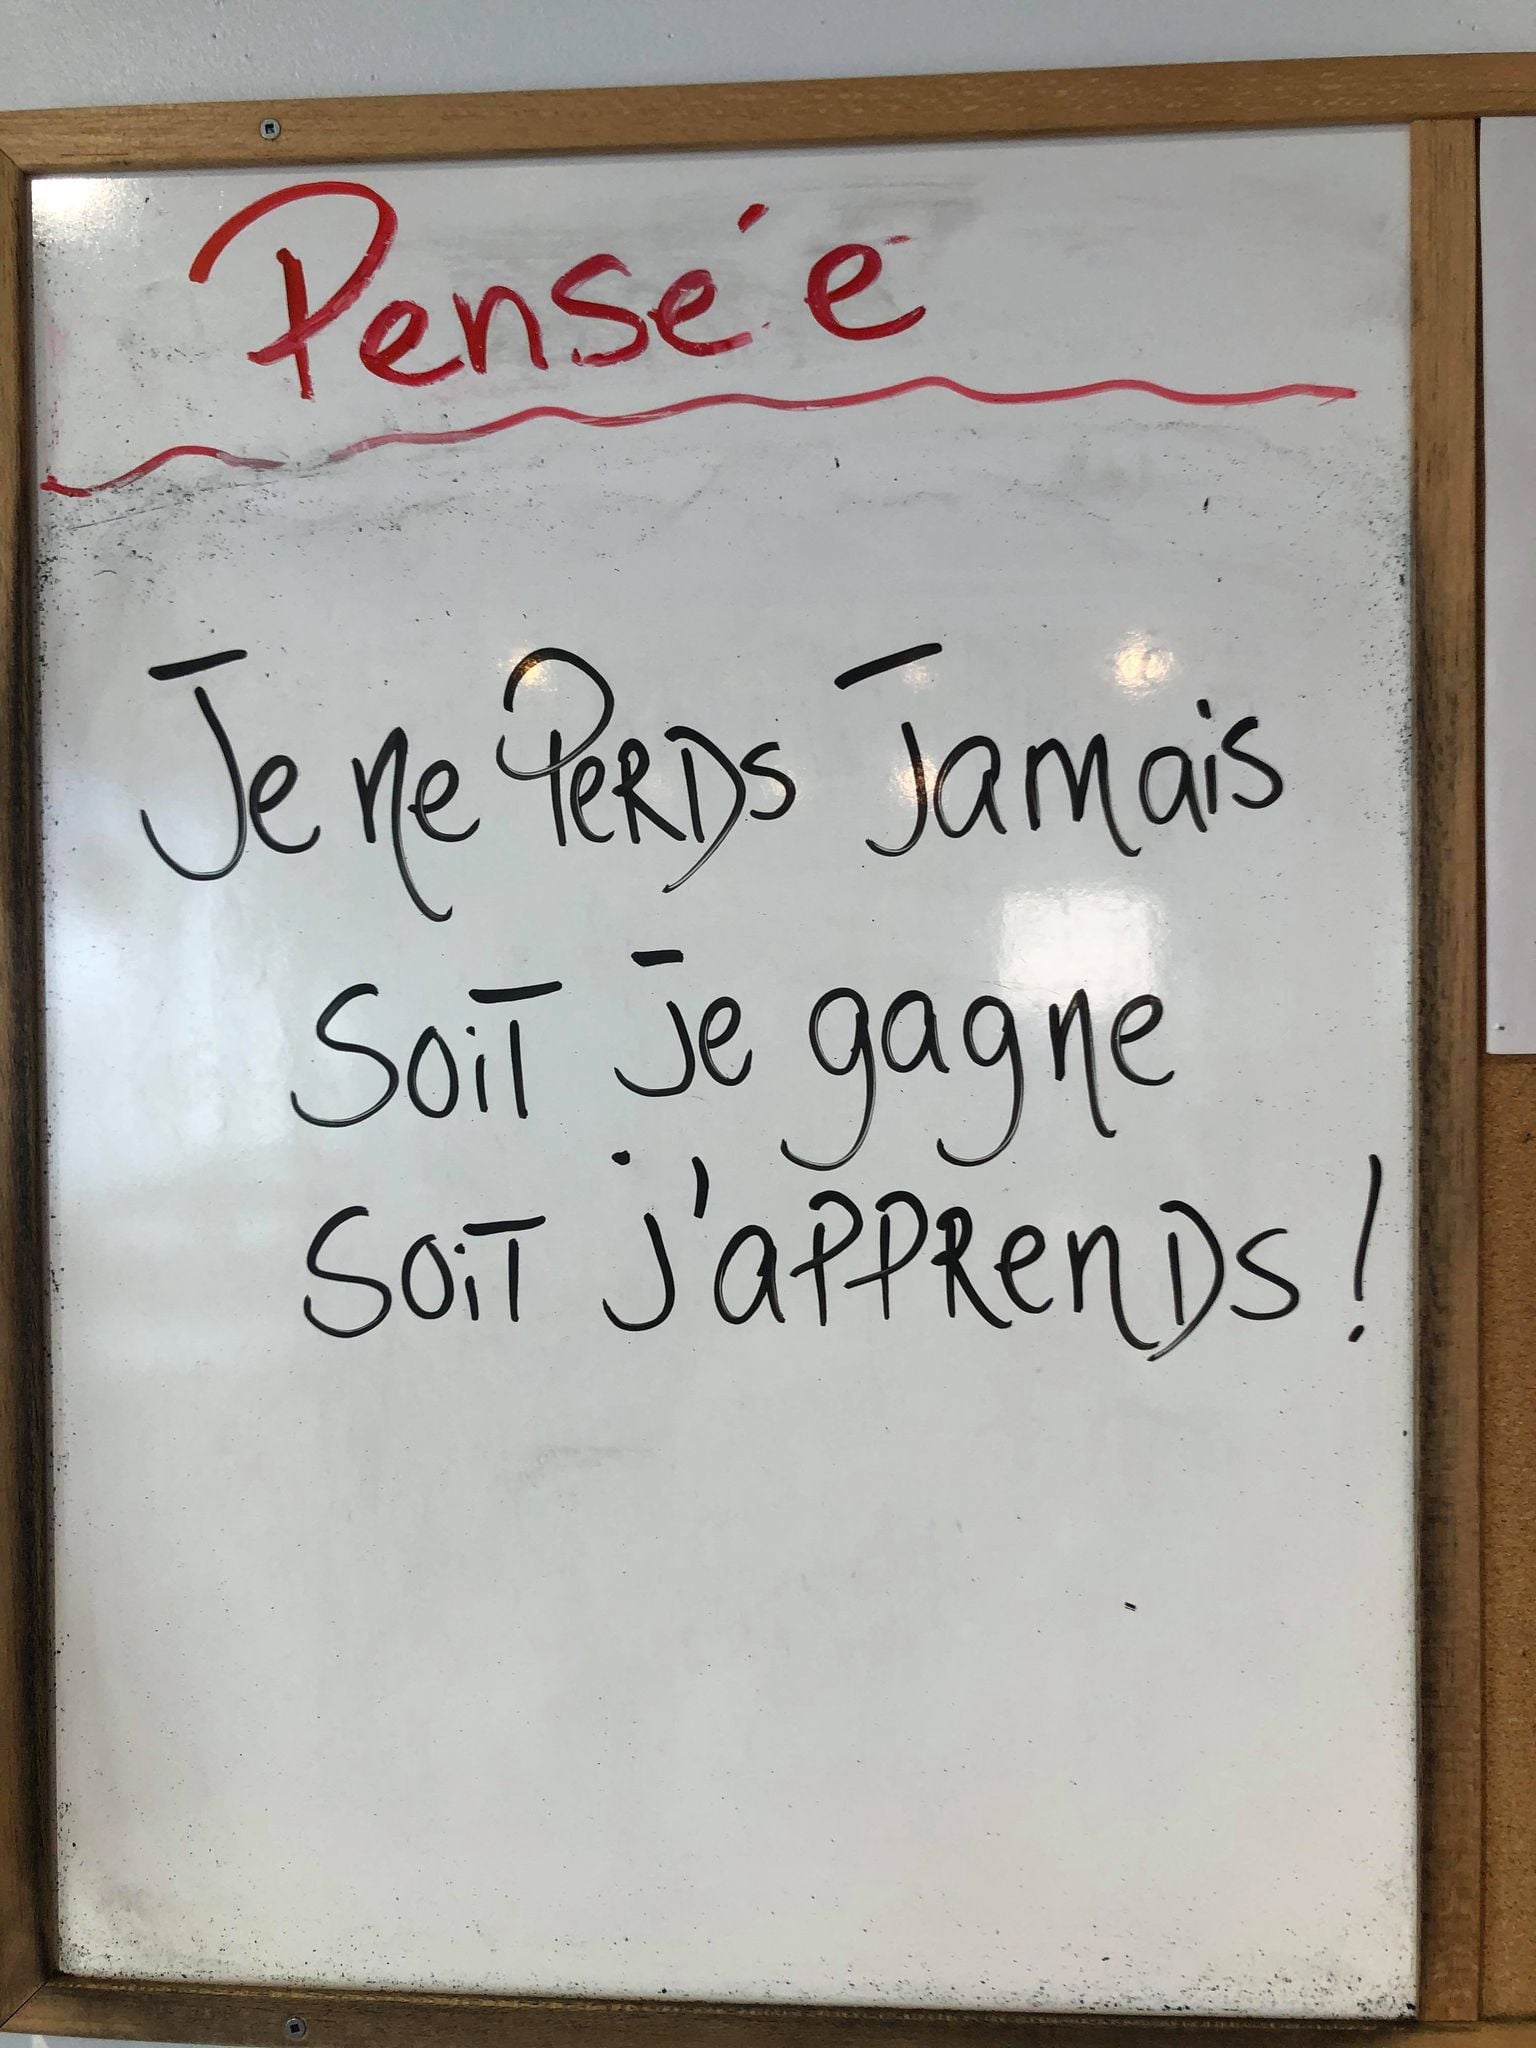 Pensée
Je ne PeRDs Jamais
SoiT Je gagne
SoiT J'aPPRenDs !